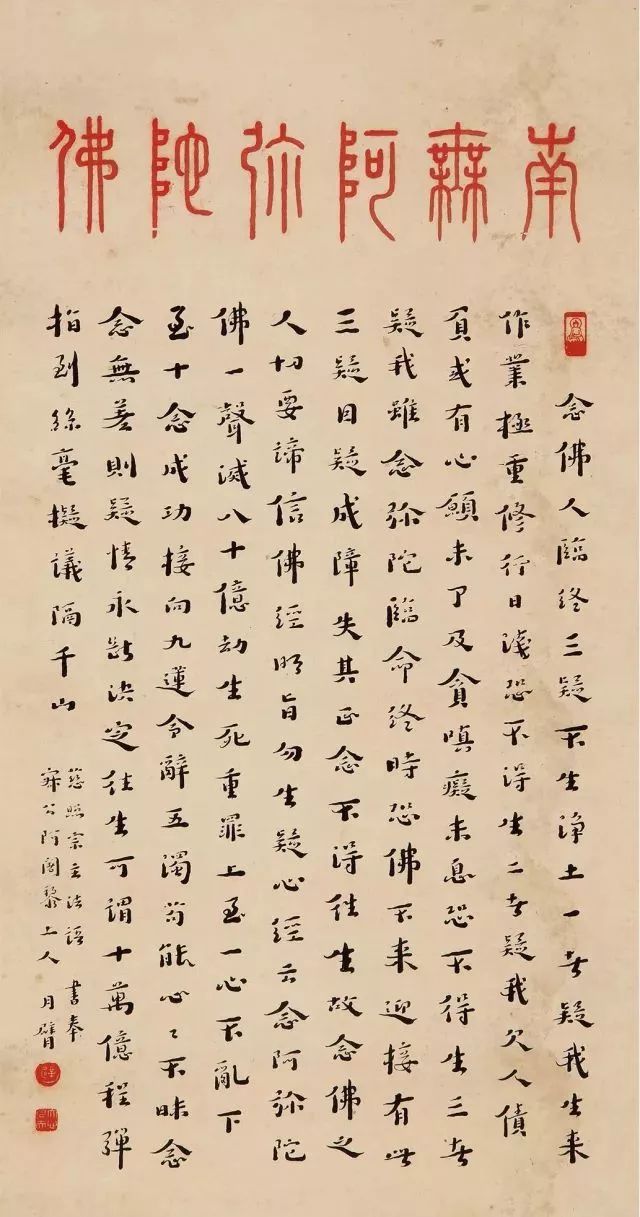 南無阿弥陀佛
念佛人臨終三疑不生淨土一者疑我生来
作業極重修行日淺恐不得生二者疑我欠人債
負或有心願未了及貪嗔癡未息恐不得生三者
疑我雖念弥陀臨命終時恐佛不来迎接有此
三疑因疑成障失其正念不得往生故念佛之
人切要諦信佛經明旨勿生疑心經云念阿弥陀
佛一聲滅八十億劫生死重罪上至一心不亂下
至十念成功接向九蓮令辭五濁苟能心〻不昧念
念無差則疑情永斷決定往生可謂十萬億程彈
指到絲毫擬議隔千山
慈照宗主法語 書奉
寂公阿闍黎上人 月臂